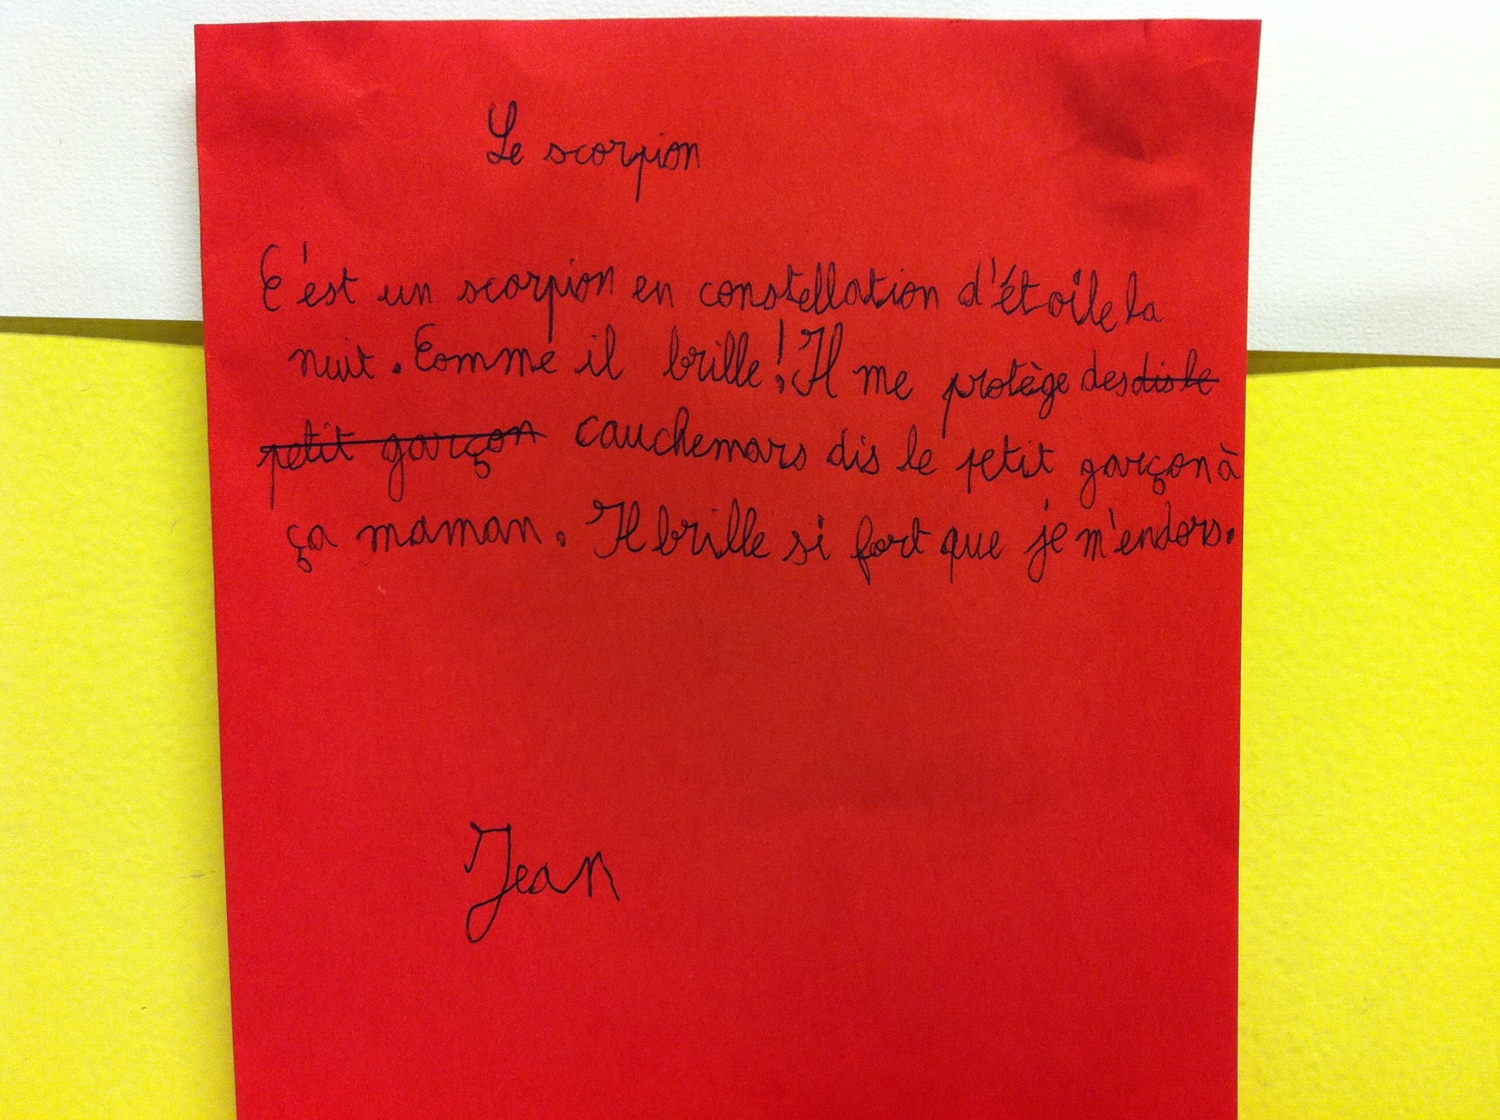 Le scorpion
C'est un scorpion en constellation d'étoile la
nuit. Comme il brille! Il me protège des dis le
petit garçon cauchemars dis le petit garçon à
ça maman. Il brille si fort que je m'endors.
Jean